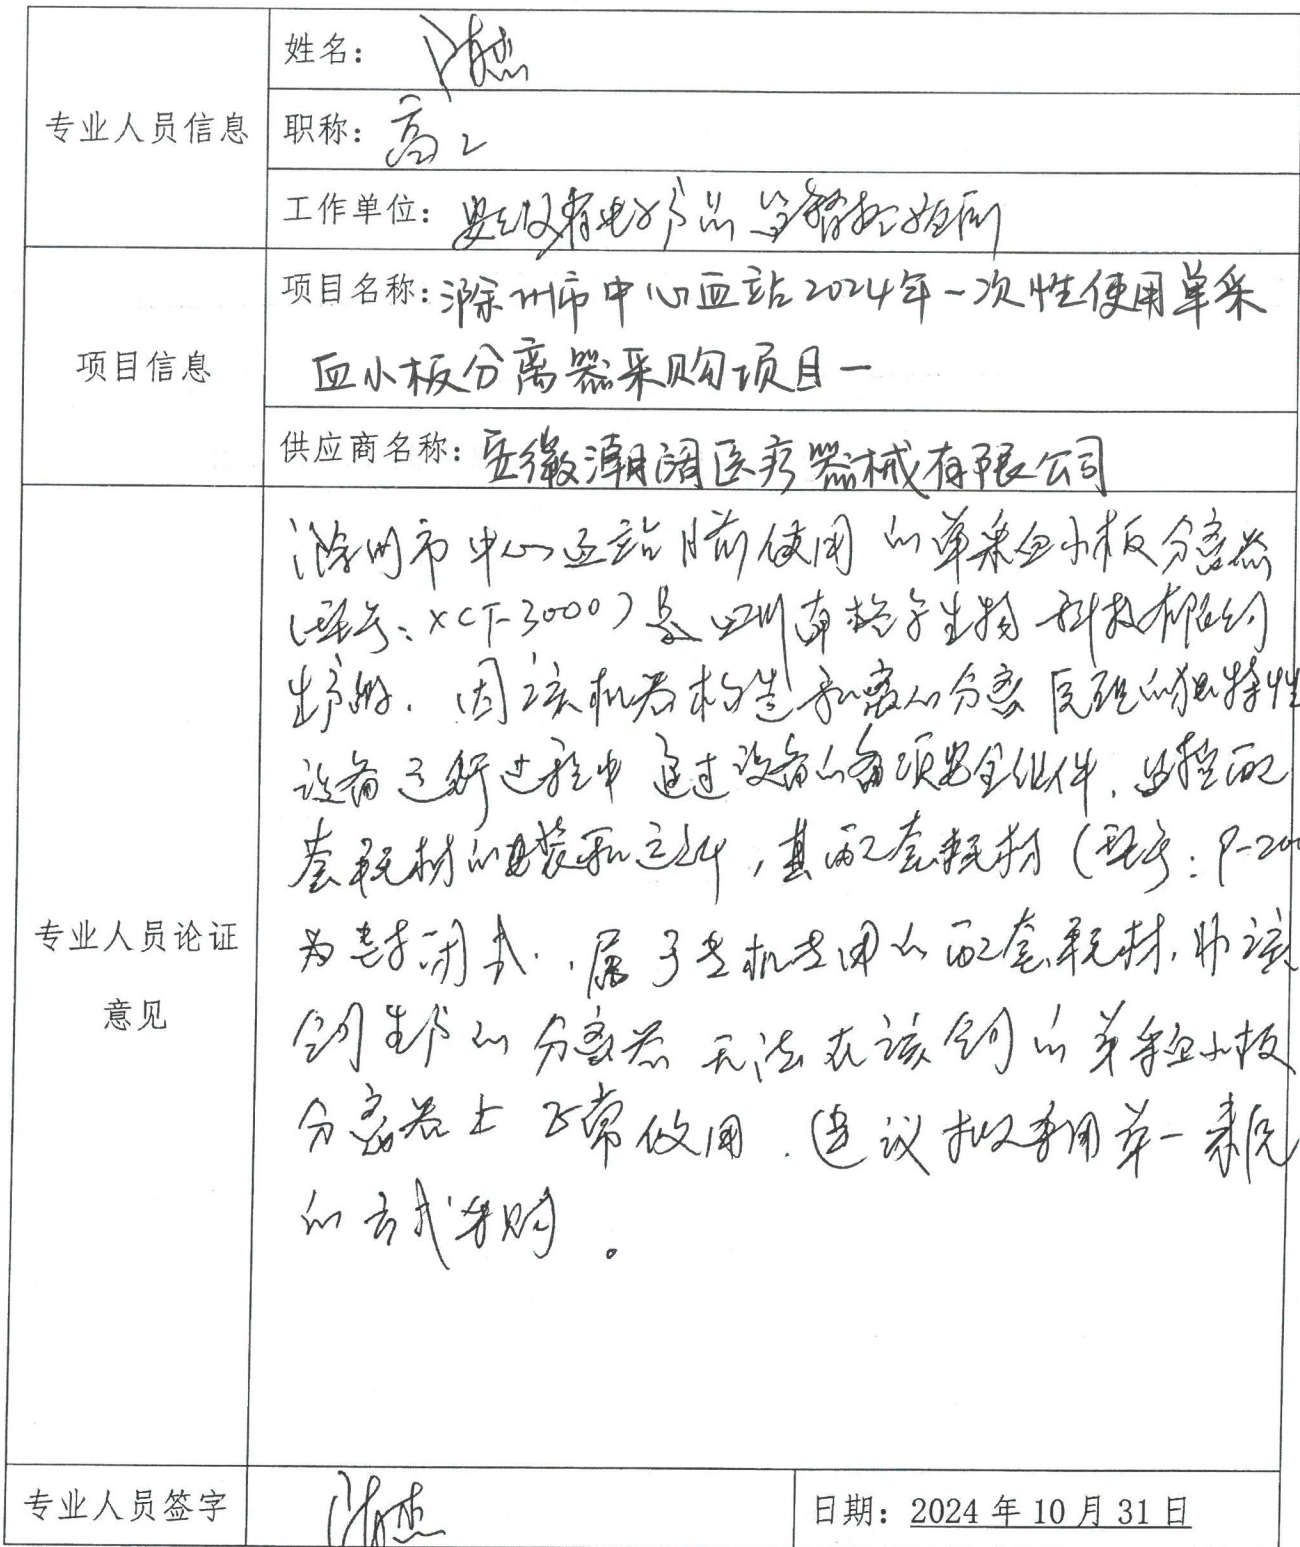 专业人员信息
姓名：
职称：高工
工作单位：安徽省电子产品监督检验所
项目信息
项目名称：滁州市中心血站2024年一次性使用单采
血小板分离器采购项目一
供应商名称：安徽潮阔医疗器械有限公司
专业人员论证
意见
滁州市中心血站目前使用的单采血小板分离器
（型号：XCT-3000）是四川南格尔生物科技有限公司
生产的．因该机器构造和离心分离原理的独特性
设备运行过程中通过设备的各项安全组件，监控配
套耗材的安装和运行，其配套耗材（型号：P-200
为封闭式，属于专机专用的配套耗材，非该
公司生产的分离器无法在该公司的单采血小板
分离器上正常使用．建议拟采用单一来源
的方式采购。
专业人员签字
日期：2024年10月31日